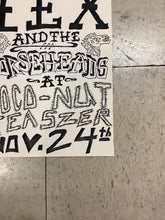 LEX
AND THE
HORSEHEADS
AT
COCO-NUT
TEASZER
NOV. 24th